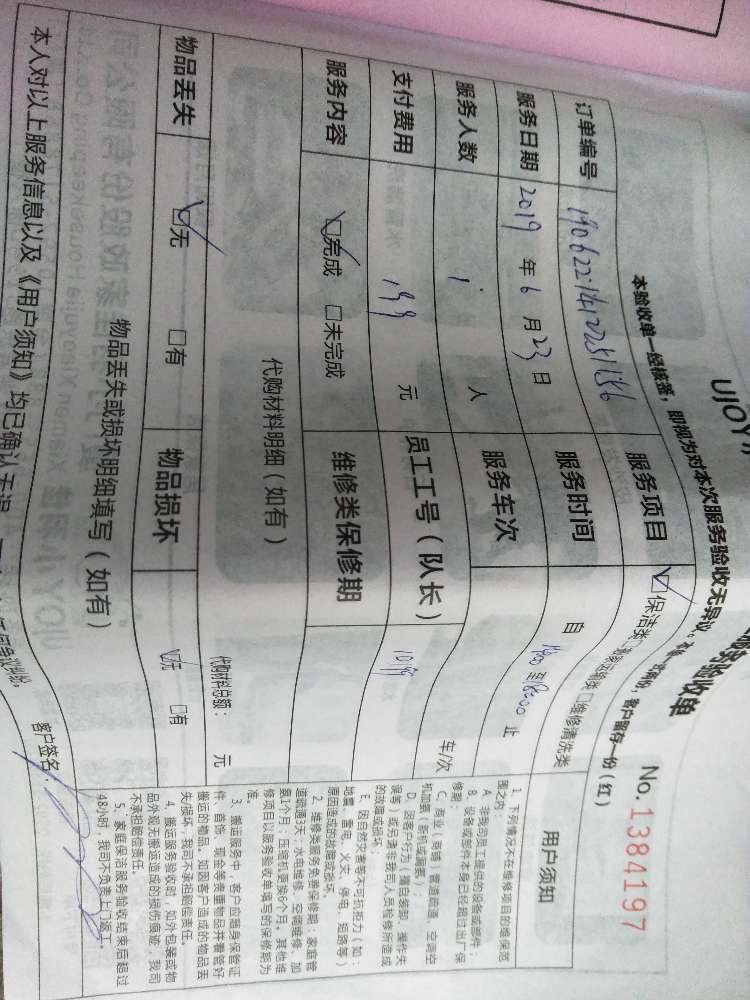 UJOY
服务验收单
No.1384197
本验收单一经核签，即视为对本次服务验收无异议。
客户留存一份（红）
订单编号
服务项目 ☑保洁类 □搬家运输类 □维修清洗类
服务日期 2019 年 6 月 23 日 服务时间 自 至18:00 止
服务人数 1 人 服务车次 车/次
支付费用 199 元 员工工号（队长）
服务内容 ☑完成 □未完成 维修类保修期
代购材料明细（如有）
代购材料总额： 元
物品丢失 ☑无 □有 物品损坏 ☑无 □有
物品丢失或损坏明细填写（如有）
本人对以上服务信息以及《用户须知》均已确认无误，
何争议纠纷。
客户签名：
用户须知
1、下列情况不在维修项目的维保范
围之内：
A、非我司员工提供的设备或部件；
B、设备或部件本身已经超过出厂保
修期；
C、商业（商铺）管道疏通，空调空
机加氨（新机或漏氨）；
D、因客户行为（擅自装卸、操作失
误等）或另请非我司人员检修所造成
的故障或损坏；
E、因自然灾害等不可抗拒力（如：
地震、雷电、火灾、停电、短路等）
原因造成的故障或损坏。
2、维修类服务免费保修期：家庭管
道疏通3天；水电维修、空调维修、加
氨1个月；压缩机更换6个月。其他维
修项目以服务验收单填写的保修期为
准。
3、搬运服务中，客户应随身保管证
件、首饰、现金等贵重物品并看管好
搬运的物品。如因客户造成的物品丢
失/损坏，我司不承担赔偿责任。
4、搬运服务验收时，如外包装或物
品外观无搬运造成的损伤痕迹，我司
不承担赔偿责任。
5、家庭保洁服务验收结束后超过
48小时，我司不负责上门返工。